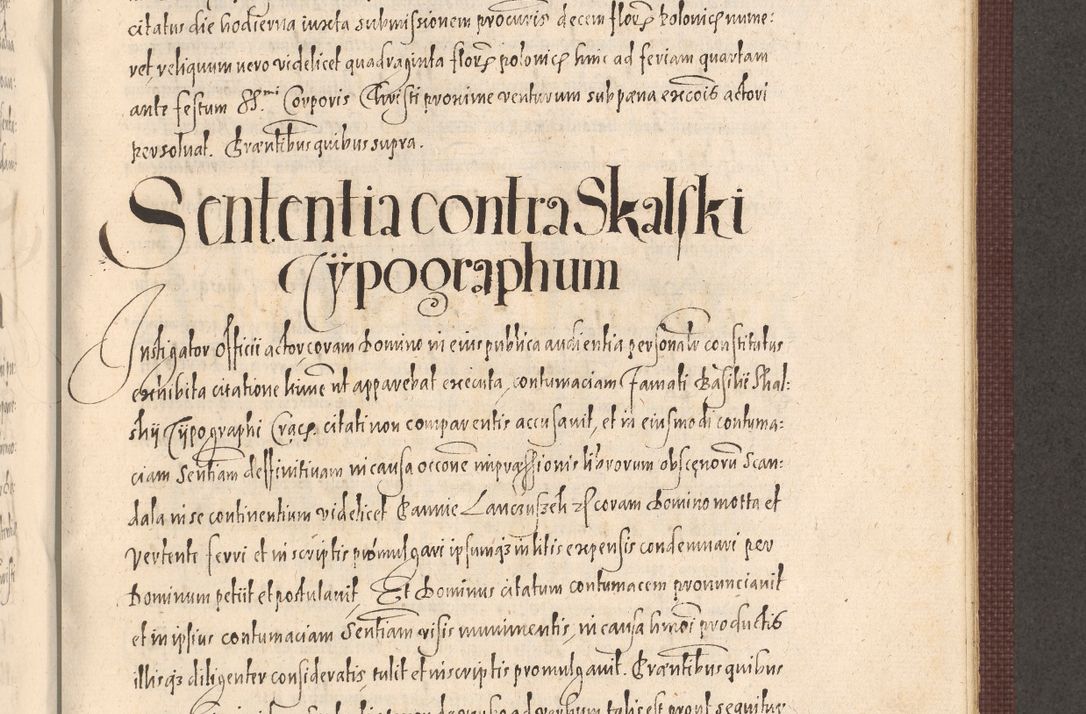 citatus die hodierna iuxta submissionem procuris decem florẽ polonicę nume:
ret reliquum vero videlicet quadraginta florẽ polonicę hinc ad feriam quartam
ante festum SS.mi Corporis Christi proxime venturum sub pæna excõis actori
persolvat. Præntibus quibus supra.
Sententia contra Skalski
Typographum
Instigator Officii actor coram Domino in eius publica audientia personalr constitutus
exhibita citatione hinc ut apparebat executa, contumaciam Famati Basilii Skal:
skij Typographi Crac. citati non comparentis accusavit, et in eiusmodi contuma:
ciam Sentiam deffinitivam in causa occõne impræssionis librorum obscęnorũ Scan:
dala in se continentium videlicet Pannie coram Domino mota et
vertente ferri et in scriptis promulgari ipsumq3 in litis expensis condemnari per
Dominum petiit et postulavit Et Dominus citatum contumacem pronunciavit
et in ipsius contumaciam Sentiam visis munimentis, in causa hmõi productis
illisq3 diligenter consideratis, tulit et in scriptis promulgavit. Præntibus quibus
ad verbum talis est prout sequitur